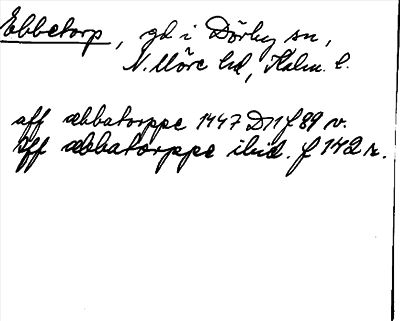 Ebbetorp, gd i Dörby sn,
N. Möre hd, Kalm. l.
aff æbbatorppe 1447 D11 f 89 v.
Aff æbbatorppe ibid. f 142 r.